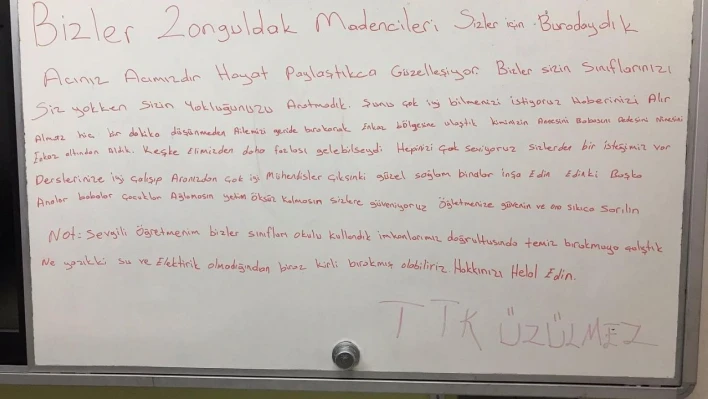 Bizler Zonguldak Madencileri Sizler için Buradaydık
Acınız Acımızdır Hayat Paylaştıkca Güzelleşiyor. Bizler sizin Sınıflarınızı
Siz yokken Sizin Yokluğunuzu Aratmadık. Şunu çok iyi bilmenizi istiyoruz Haberinizi Alır
Almaz hiç bir dakika düşünmeden Ailemizi geride bırakarak Enkaz bölgesine ulaştık kiminizin Annesini Babasını Dedesini Ninesini
Enkaz altından Aldık. Keşke Elimizden daha fazlası gelebilseydi Hepinizi Çok Seviyoruz Sizlerden bir isteğimiz var
Derslerinize iyi çalışıp Aranızdan çok iyi Mühendisler çıksınki güzel sağlam binalar inşa Edin Edinki Başka
Analar babalar çocukları Ağlamasın yetim öksüz kalmasın sizlere güveniyoruz Öğretmenize güvenin ve ona sıkıca Sarılın
Not: Sevgili Öğretmenim bizler sınıfları okulu kullandık imkanlarımız doğrultusunda temiz bırakmaya çalıştık
Ne yazıkki su ve Elektirik olmadığından biraz kirli bırakmış olabiliriz Hakkınızı Helal Edin.
TTK ÜZÜLMEZ